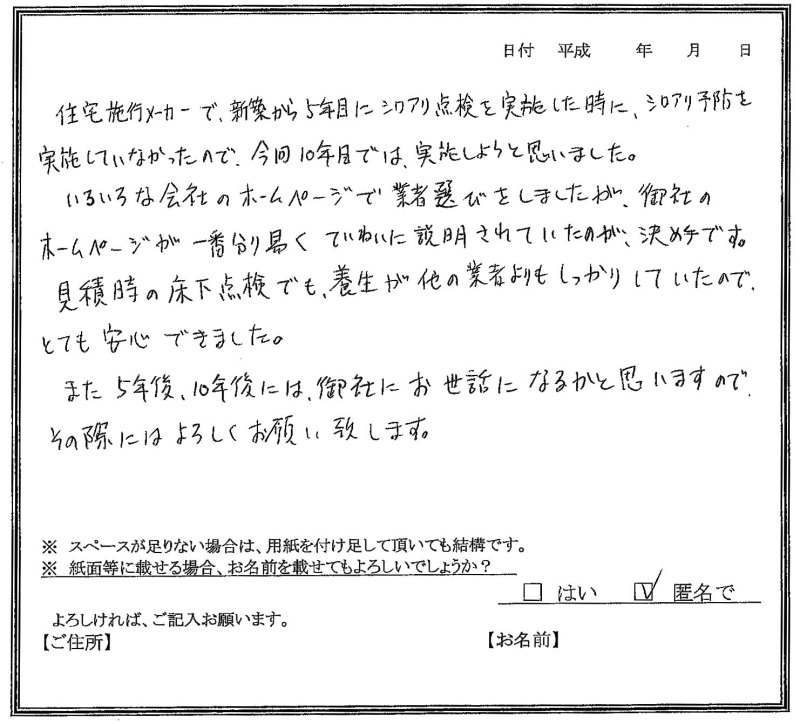 日付 平成 年 月 日
住宅施行メーカーで、新築から5年目にシロアリ点検を実施した時に、シロアリ予防を
実施していなかったので、今回10年目では、実施しようと思いました。
いろいろな会社のホームページで業者選びをしましたが、御社の
ホームページが一番分り易くていねいに説明されていたのが、決め手です。
見積時の床下点検でも、養生が他の業者よりもしっかりしていたので、
とても安心できました。
また5年後、10年後には、御社にお世話になるかと思いますので、
その際にはよろしくお願い致します。
※ スペースが足りない場合は、用紙を付け足して頂いても結構です。
※ 紙面等に載せる場合、お名前を載せてもよろしいでしょうか？
□ はい ☑ 匿名で
よろしければ、ご記入お願います。
【ご住所】 【お名前】